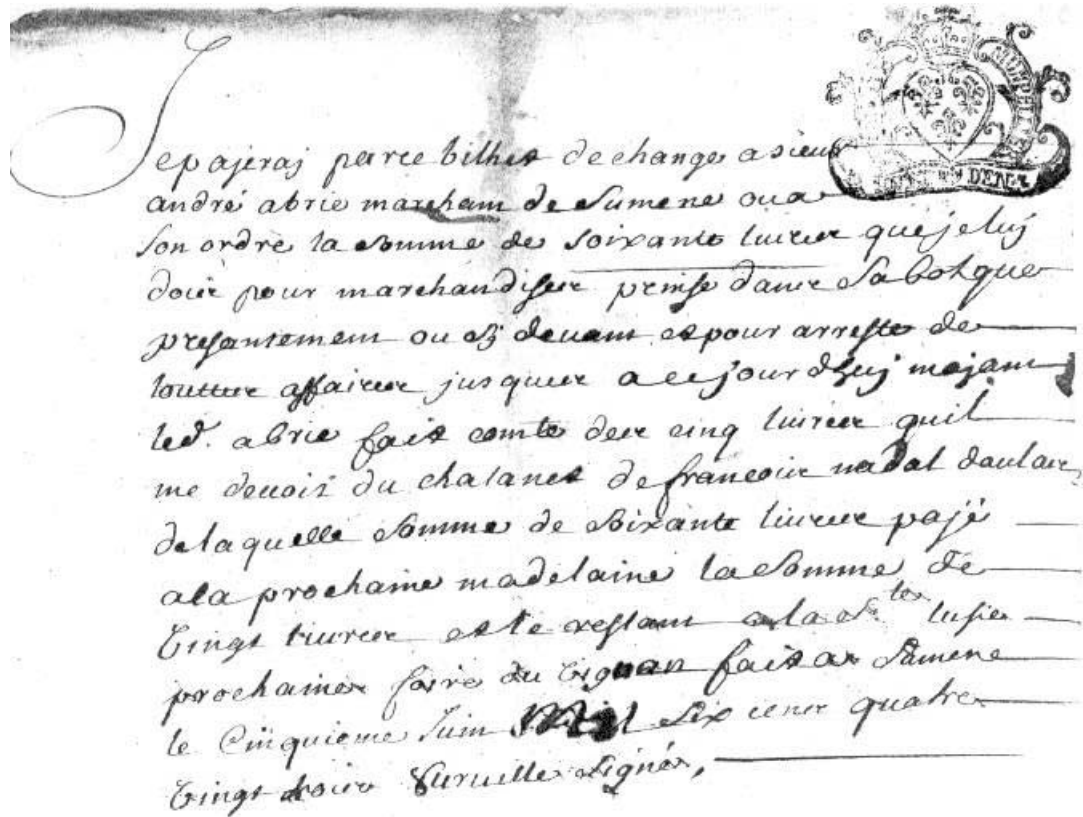 MONPELLIER
DEN.rs
Je pajeraj par ce bilhet de change a sieur
andré abric marchant de Sumene ou a
son ordre la somme de soixante livres que je luj
dois pour marchandises prinse dans sa botique
presantement ou cy devant et pour arreste de
touttes affaires jusques a ce jour dhuj majant
led. abric fait comte des cinq livres quil
me devoit du chalanet de francois nadal daulas
de laquelle somme de soixante livres pajé
a la prochaine madelaine la somme de
vingt livres et le restant a la Ste lusie
prochaine foire du vigan fait a Sumene
le Cinquieme Juin Mil Six cens quatre
vingt trois Surville Signés,